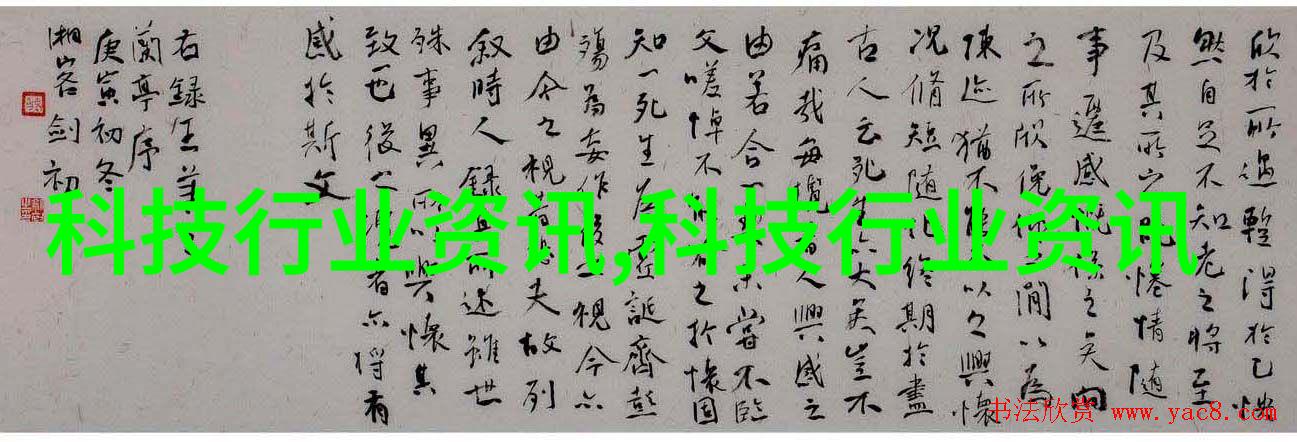 欣於所遇暫得於己快
然自足不知老之將至
及其所之既惓情隨
事遷感慨係之矣向
之所欣俛仰之間以為
陳迹猶不以之興懷
況脩短隨化終期於盡
古人云死生亦大矣豈不
痛哉每攬昔人興感之
由若合一契未嘗不臨
文嗟悼不能喻之於懷固
知一死生為虛誕齊彭
殤為妄作後之視今亦
由今之視昔悲夫故列
敘時人錄其所述雖世
殊事異所以興懷其
致一也後之覽者亦將有
感於斯文
右錄王羲之
蘭亭序
庚寅初冬
湘客劍初
科技行业资讯,科技行业资讯
书法欣赏 www.yac8.com